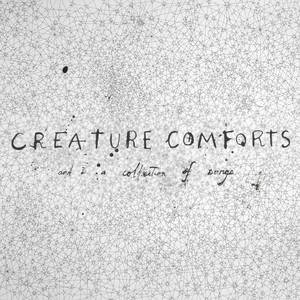 CREATURE COMFORTS
and a collection of songs